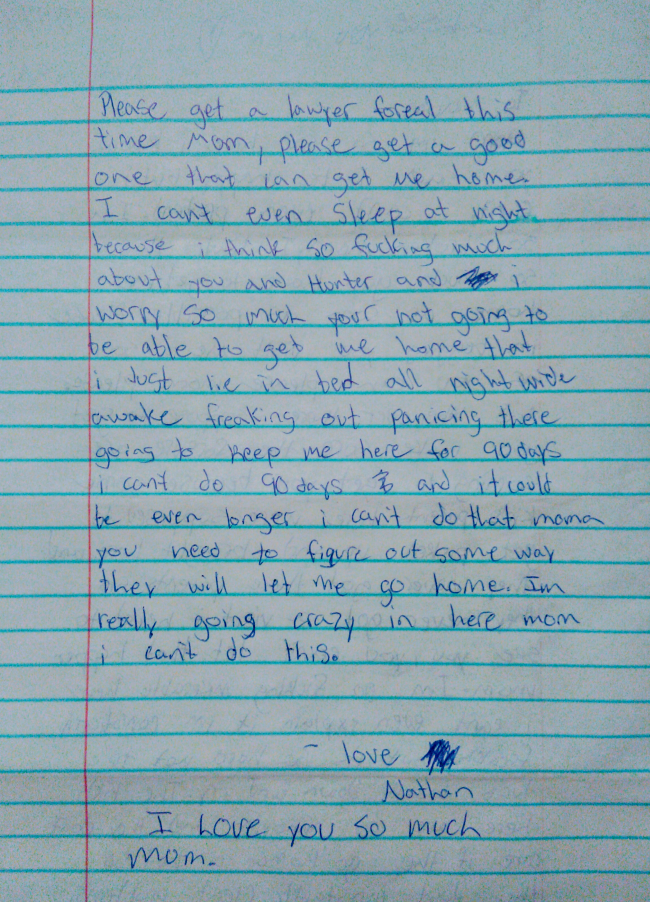 Please get a lawyer foreal this
time Mom, please get a good
one that can get me home.
I can't even sleep at night
because i think so fucking much
about you and Hunter and i
worry so much your not going to
be able to get me home that
i Just lie in bed all night wide
awake freaking out panicing there
going to keep me here for 90 days
i can't do 90 days and it could
be even longer i can't do that moma
you need to figure out some way
they will let me go home. Im
really going crazy in here mom
i can't do this.
- love
Nathan
I Love you so much
Mom.